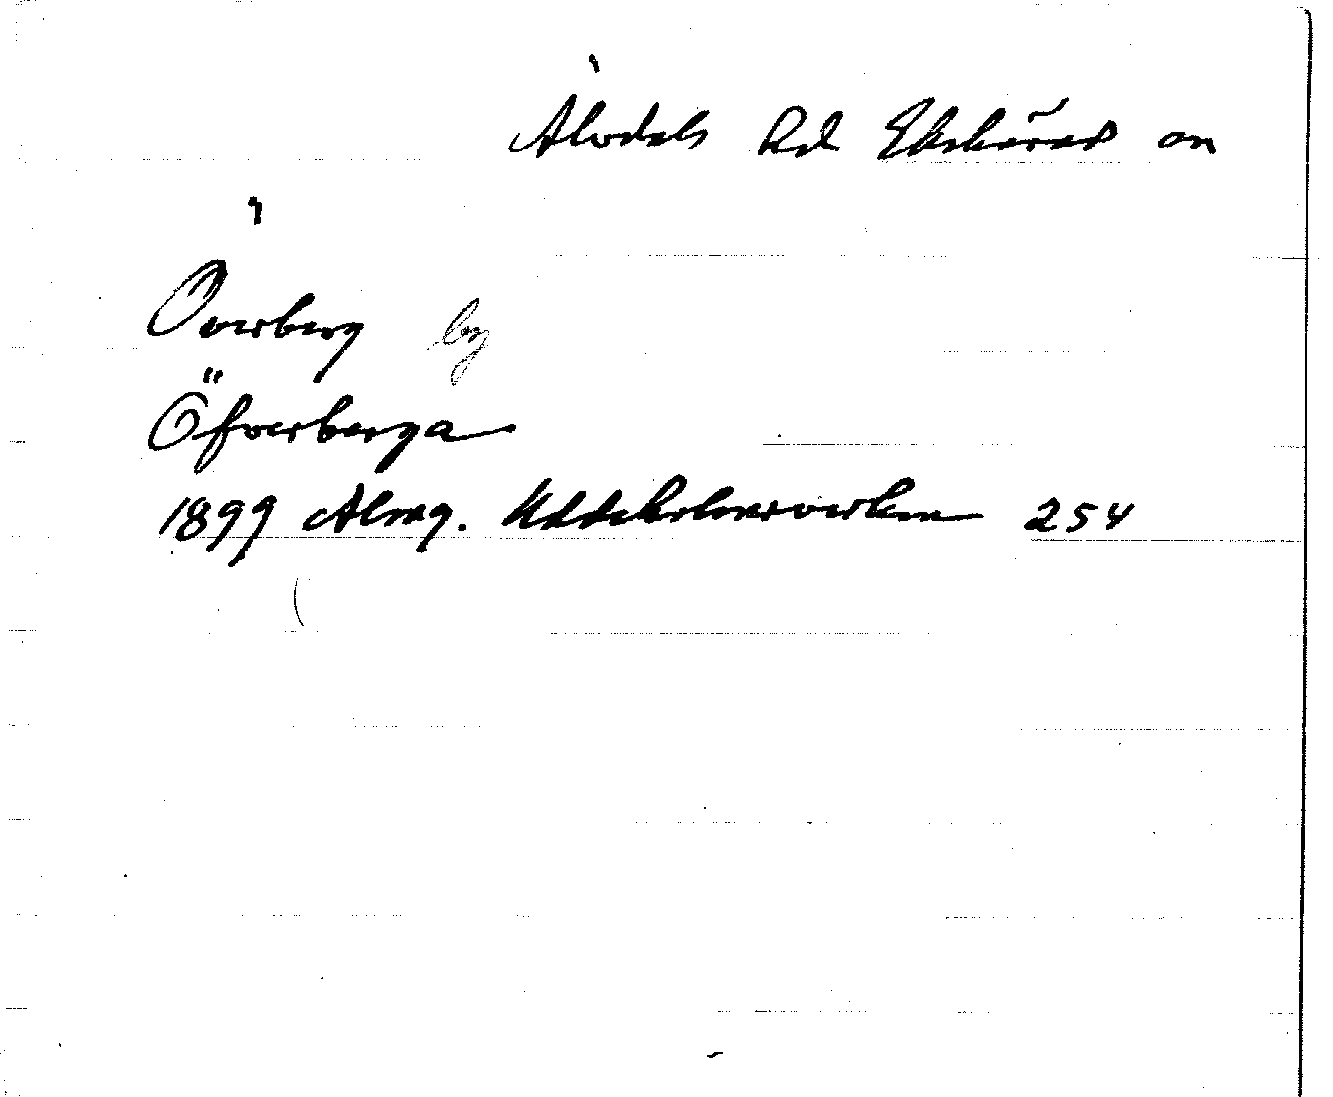 Älvdals hd Ekshärad sn
Överberg by
Öfverberga
1899 Almq. Uddeholmsverken 254